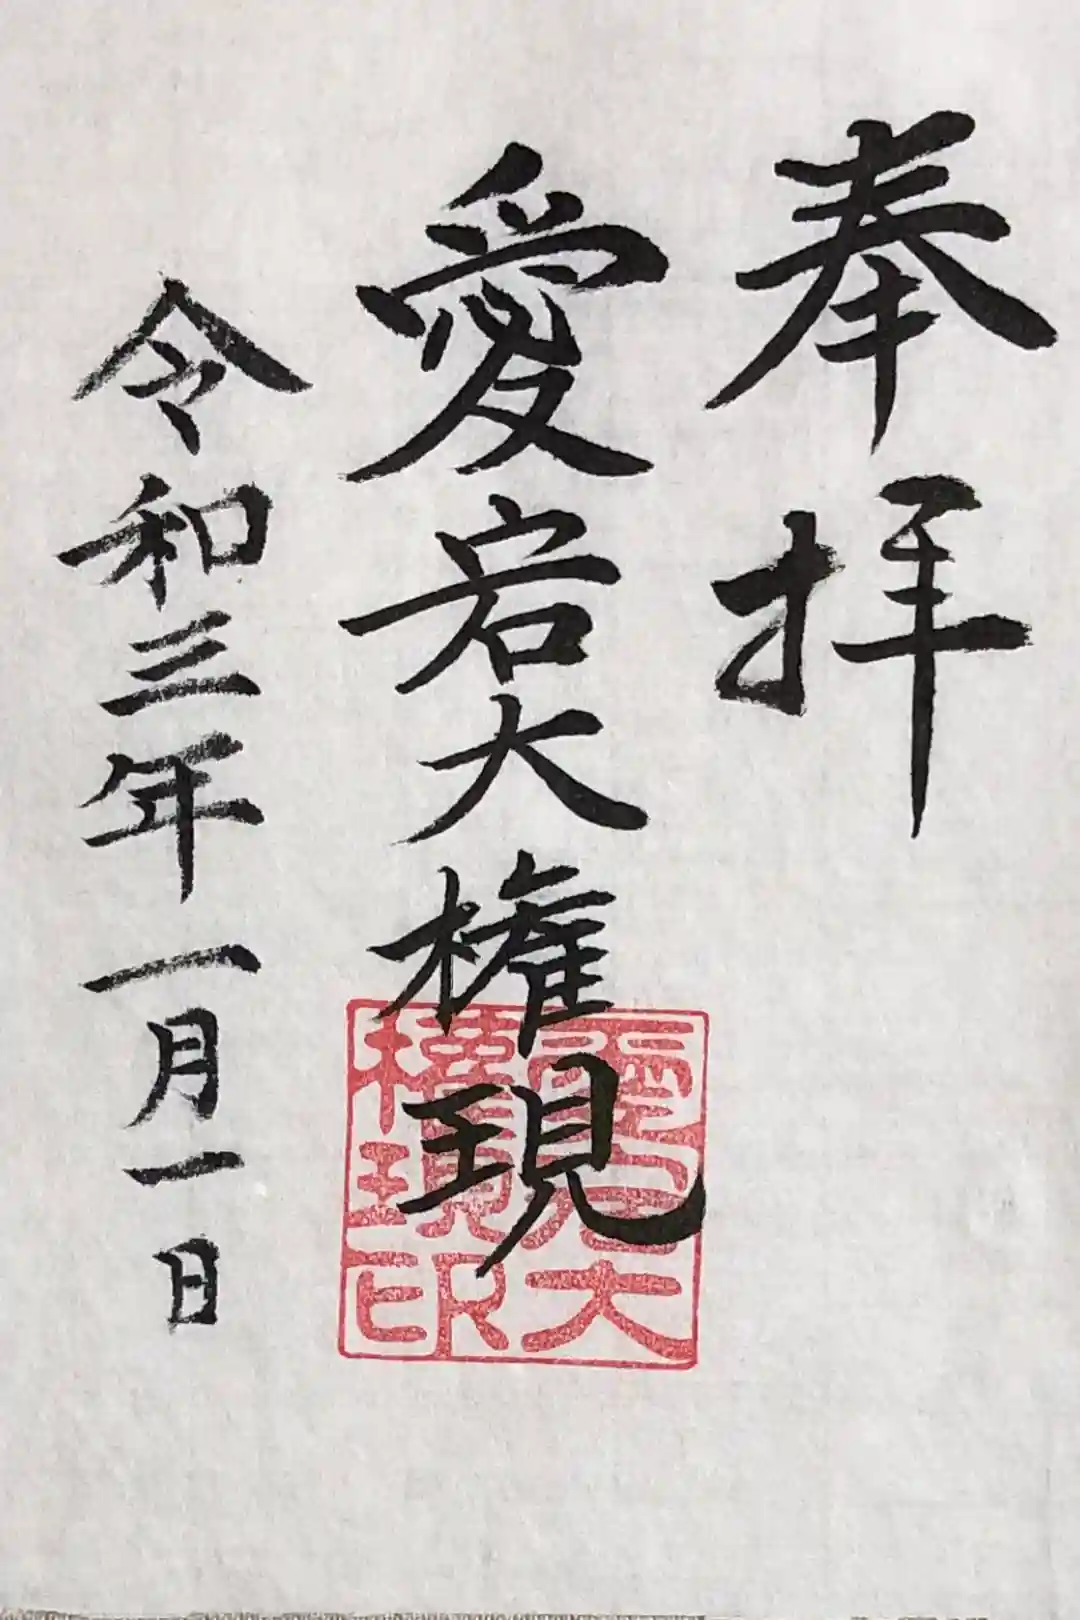 奉拝
愛宕大権現
令和三年一月一日
愛宕大
權現印